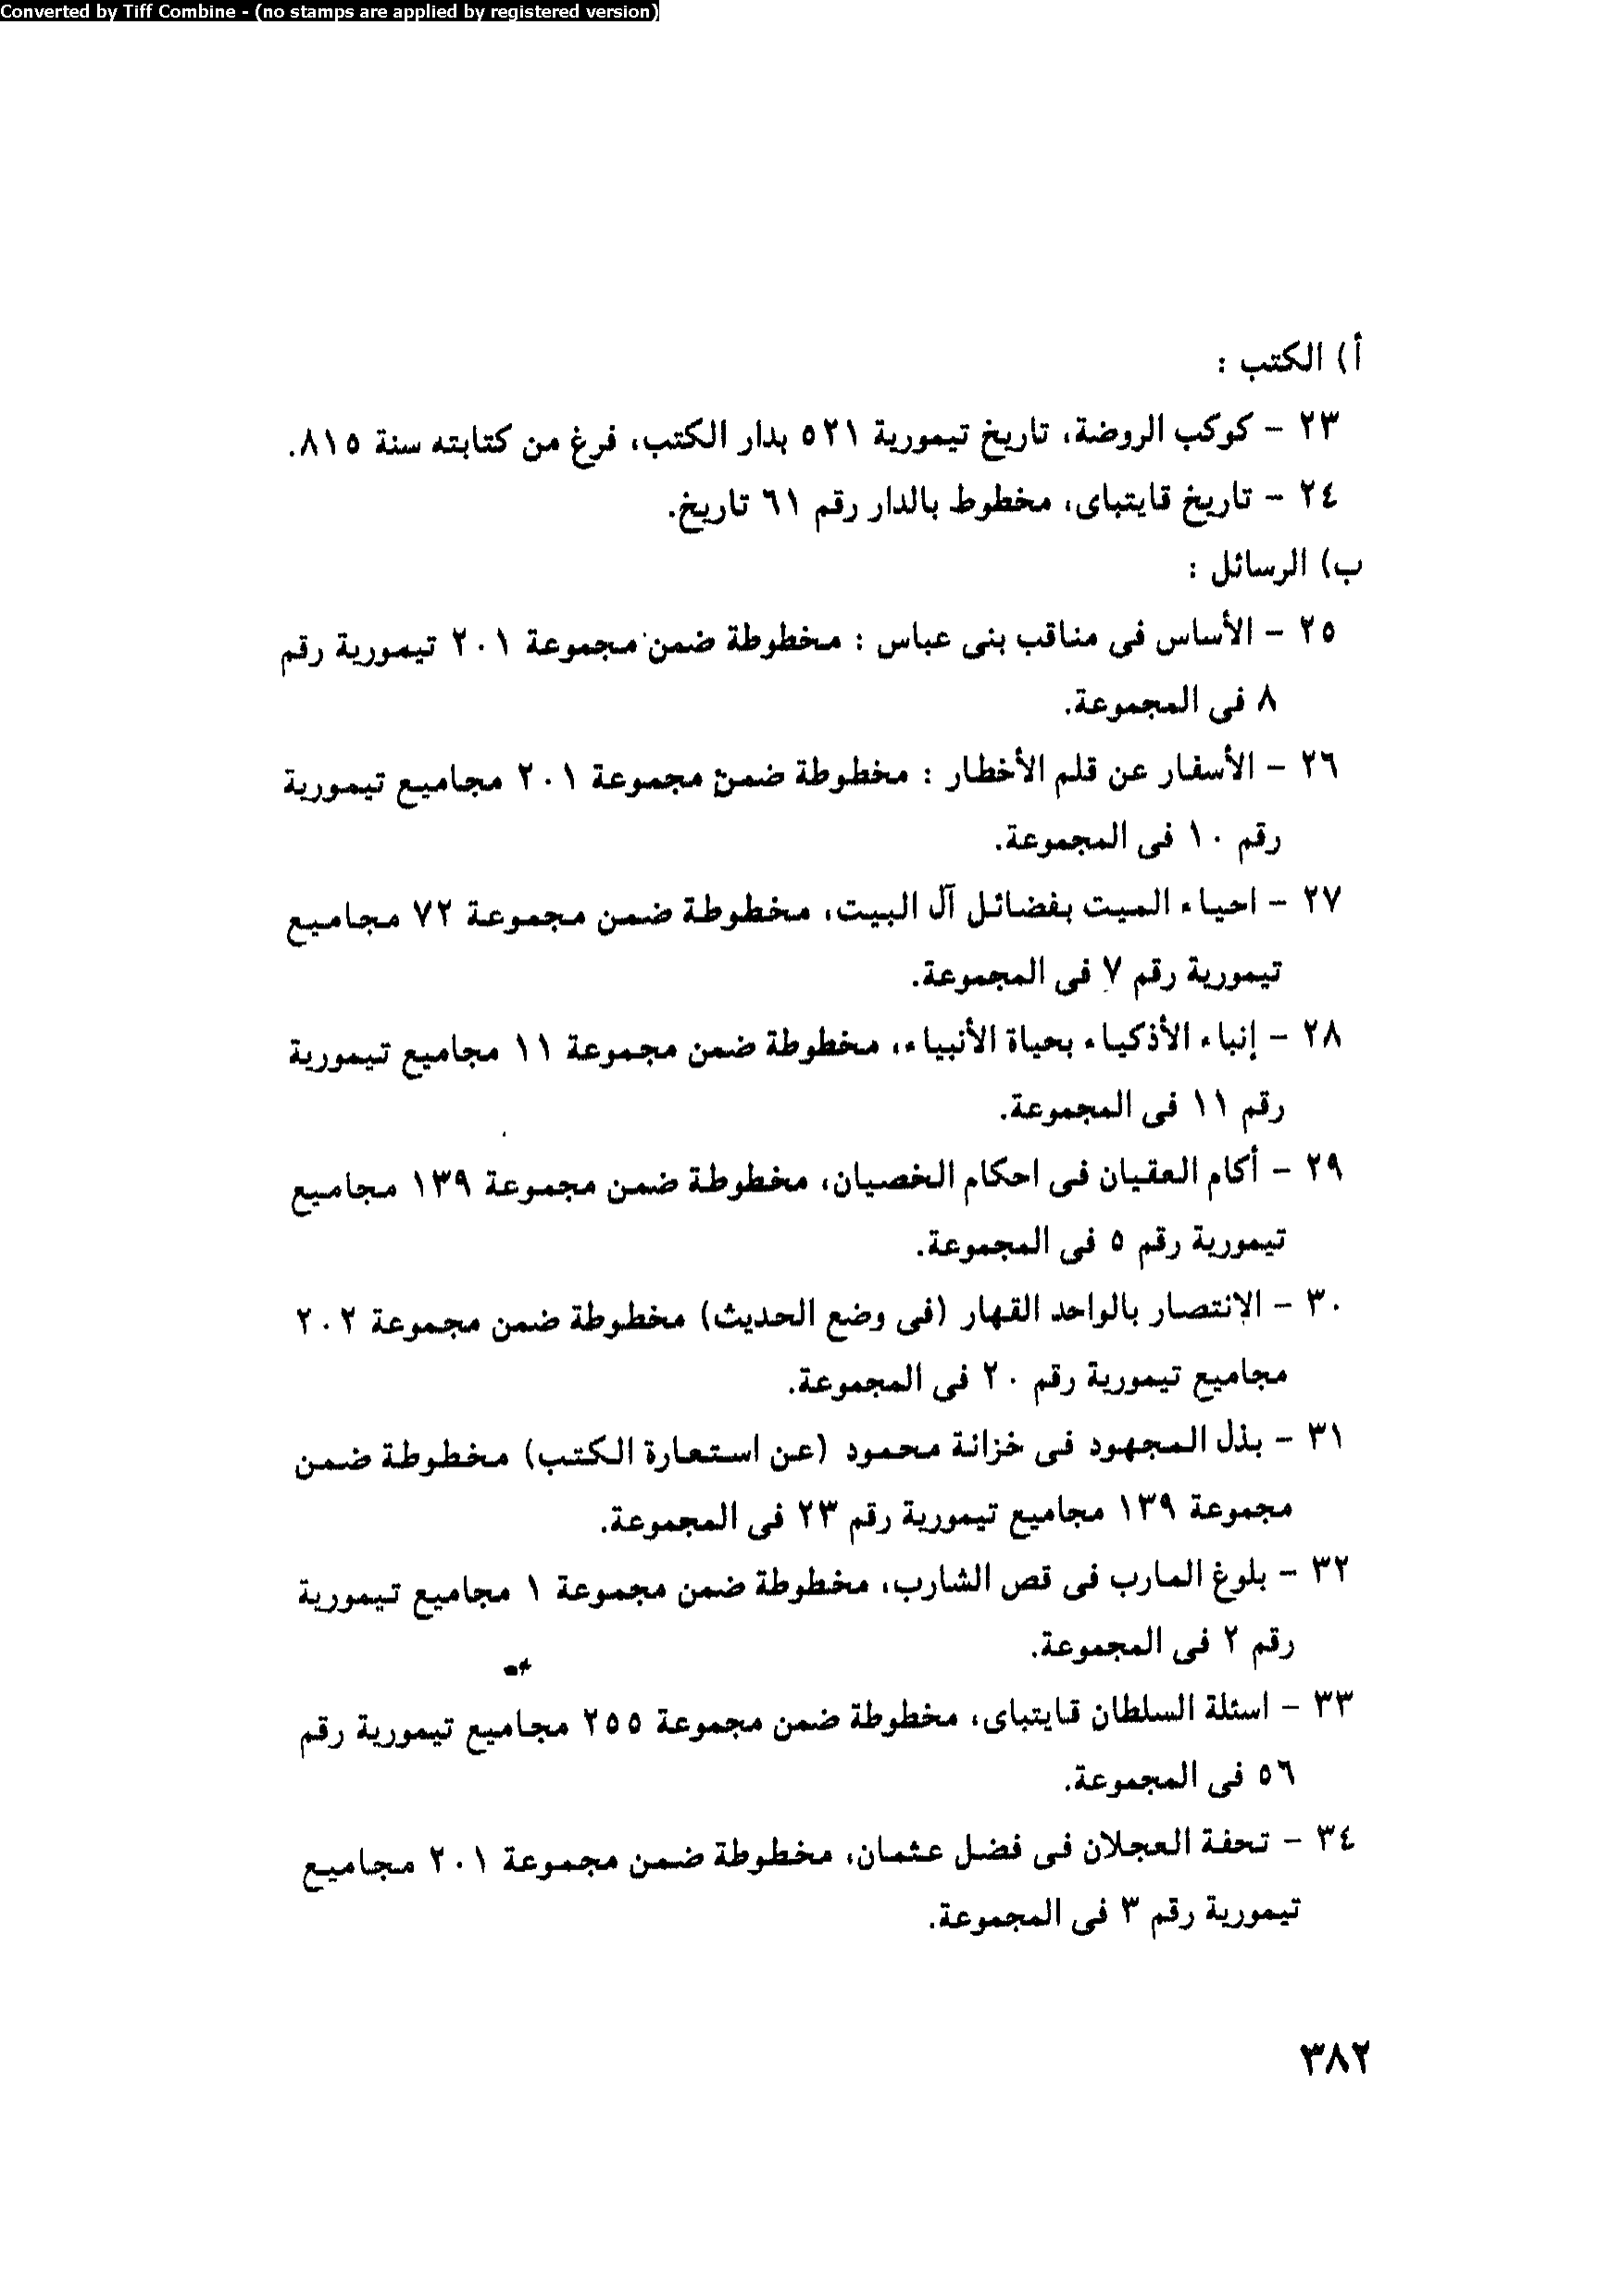 Converted by Tiff Combine - (no stamps are applied by registered version)
أ) الكتب :
٢٣ - كوكب الروضة، تاريخ تيمورية ٥٢١ بدار الكتب، فرغ من كتابته سنة ٨١٥.
٢٤ - تاريخ قايتباى، مخطوط بالدار رقم ٦١ تاريخ.
ب) الرسائل :
٢٥ - الأساس فى مناقب بنى عباس : مخطوطة ضمن مجموعة ٢٠١ تيمورية رقم
٨ فى المجموعة.
٢٦ - الأسفار عن قلم الأخطار : مخطوطة ضمن مجموعة ٢٠١ مجاميع تيمورية
رقم ١٠ فى المجموعة.
٢٧ - احياء الميت بفضائل آل البيت، مخطوطة ضمن مجموعة ٧٢ مجاميع
تيمورية رقم ٧ فى المجموعة.
٢٨ - إنباء الأذكياء بحياة الأنبياء، مخطوطة ضمن مجموعة ١١ مجاميع تيمورية
رقم ١١ فى المجموعة.
٢٩ - أكام العقيان فى احكام الخصيان، مخطوطة ضمن مجموعة ١٣٩ مجاميع
تيمورية رقم ٥ فى المجموعة.
٣٠ - الإنتصار بالواحد القهار (فى وضع الحديث) مخطوطة ضمن مجموعة ٢٠٢
مجاميع تيمورية رقم ٢٠ فى المجموعة.
٣١ - بذل المجهود فى خزانة محمود (عن استعارة الكتب) مخطوطة ضمن
مجموعة ١٣٩ مجاميع تيمورية رقم ٢٣ فى المجموعة.
٣٢ - بلوغ المارب فى قص الشارب، مخطوطة ضمن مجموعة ١ مجاميع تيمورية
رقم ٢ فى المجموعة.
٣٣ - اسئلة السلطان قايتباى، مخطوطة ضمن مجموعة ٢٥٥ مجاميع تيمورية رقم
٥٦ فى المجموعة.
٣٤ - تحفة العجلان فى فضل عثمان، مخطوطة ضمن مجموعة ٢٠١ مجاميع
تيمورية رقم ٣ فى المجموعة.
٣٨٢